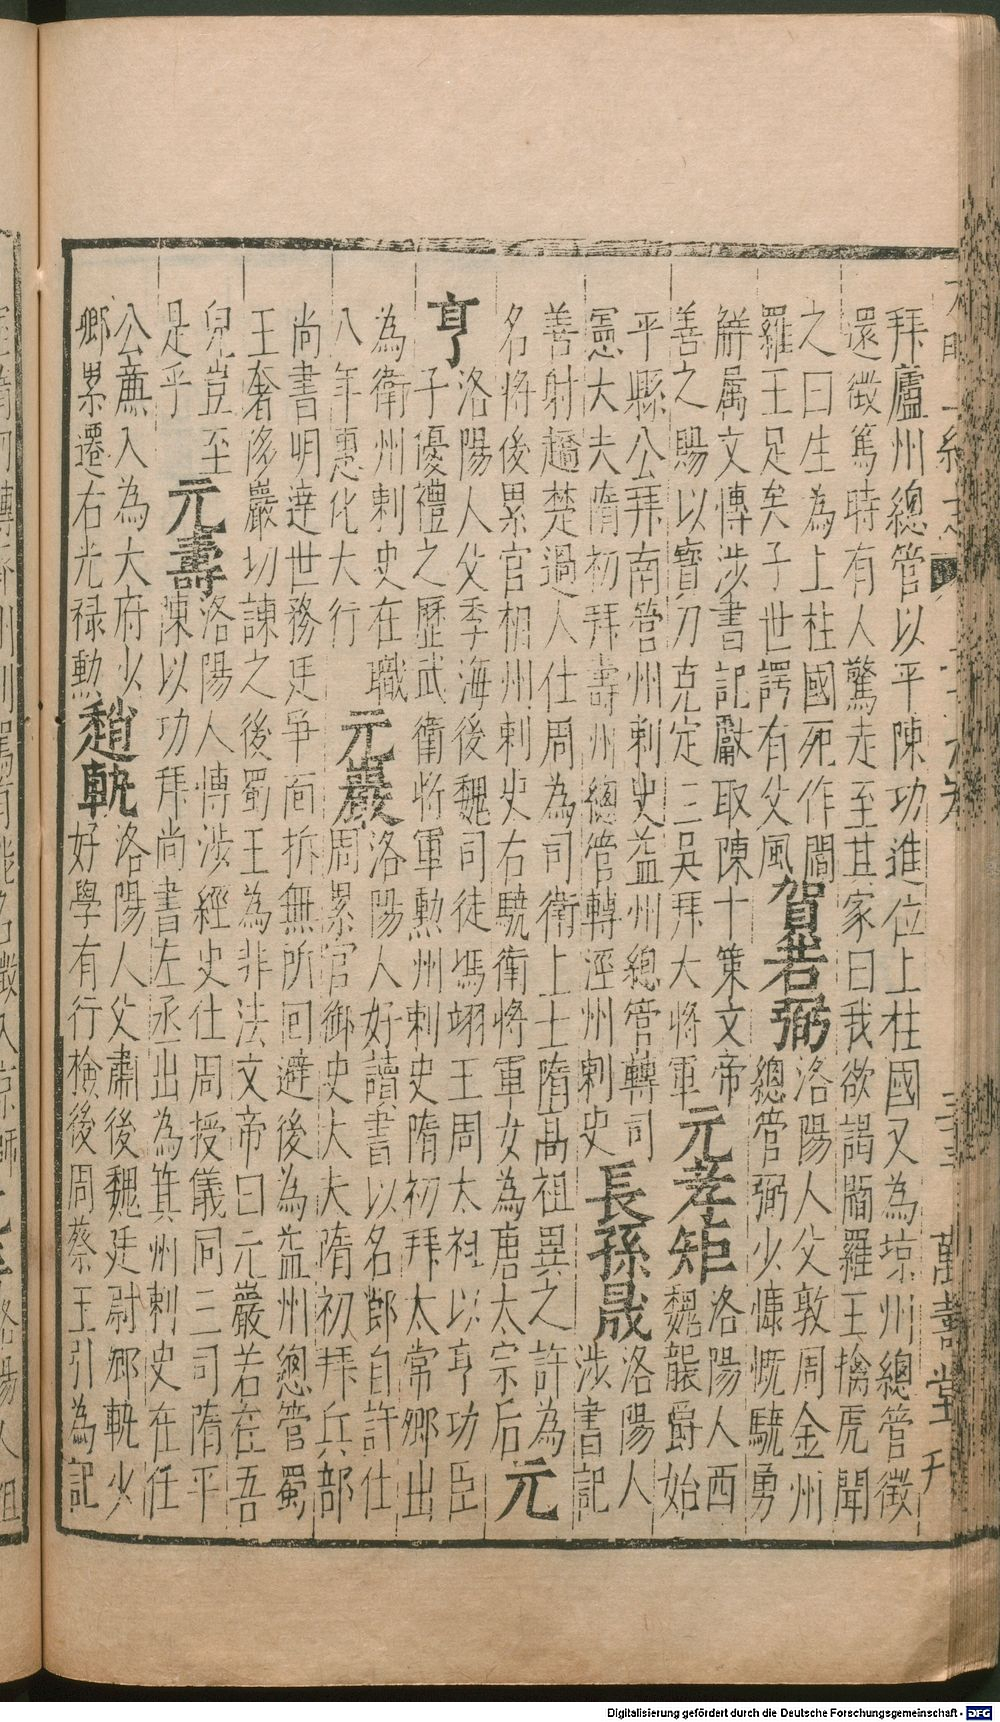 拜廬州總管以平陳功進位上柱國又為涼州總管徵
還徵篤時有人驚走至其家曰我欲謁閻羅王擒虎聞
之曰生為上柱國死作閻
羅王足矣子世諤有父風
賀若弼
洛陽人父敦周金州
總管弼少慷慨驍勇
解属文博涉書記獻取陳十策文帝
善之賜以寳刀克定三吳拜大將軍
元孝矩
洛陽人西
魏襲爵始
平縣公拜南營州刺史益州總管轉司
憲大夫隋初拜壽州總管轉涇州刺史
長孫晟
洛陽人
涉書記
善射趫楚過人仕周為司衛上士隋高祖異之許為
名將後累官相州刺史右驍衛將軍女為唐太宗后
元
亨
洛陽人父季海後魏司徒馮翊王周太祖以亨功臣
子優禮之歷武衛將軍勲州刺史隋初拜太常卿出
為衛州刺史在職
八年惠化大行
元巖
洛陽人好讀書以名節自許仕
周累官御史大夫隋初拜兵部
尚書明達世務廷爭面折無所回避後為益州總管蜀
王奢侈巖切諫之後蜀王為非法文帝曰元巖若在吾
兒豈至
是乎
元壽
洛陽人博涉經史仕周授儀同三司隋平
陳以功拜尚書左丞出為箕州刺史在任
公廉入為大府少
卿累遷右光禄勲
趙軌
洛陽人父肅後魏廷尉卿軌少
好學有行檢後周蔡王引為記
萬壽堂刊
Digitalisierung gefördert durch die Deutsche Forschungsgemeinschaft - DFG